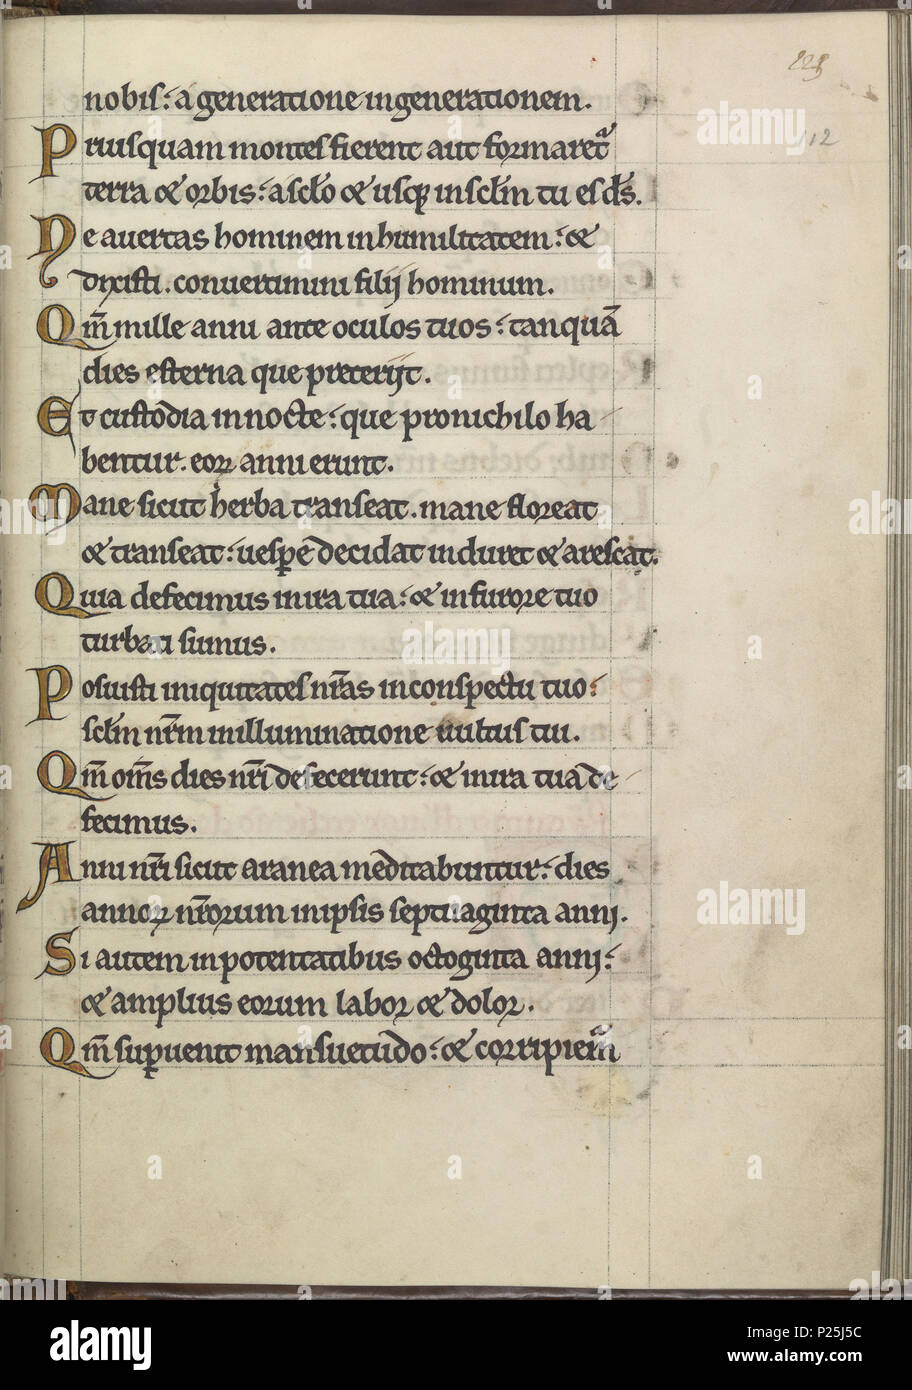 223
112
nobis: a generatione in generationem.
Priusquam montes fierent aut formaret᷑
terra & orbis: a sclo & usq; in sclm tu es ds.
Ne auertas hominem in humilitatem: &
dixisti. conuertimini filij hominum.
Qm̄ mille anni ante oculos tuos: tanquā
dies esterna que preterijt.
Et custodia in nocte: que pro nichilo ha
bentur. eoꝝ anni erunt.
Mane sicut herba transeat. mane floreat
& transeat: uespe decidat induret & arescat.
Quia defecimus in ira tua: & in furore tuo
turbati sumus.
Posuisti iniquitates nr̄as in conspectu tuo:
sclm nr̄m in illuminatione uultus tui.
Qm̄ om̄s dies nr̄i defecerunt: & in ira tua de
fecimus.
Anni nr̄i sicut aranea meditabuntur: dies
annoꝝ nr̄orum in ipsis septuaginta anni.
Si autem in potentatibus octoginta anni:
& amplius eorum labor & dolor.
Qm̄ suꝑuenit mansuetudo: & corripiem᷑
alamy
Image ID: P25J5C
www.alamy.com